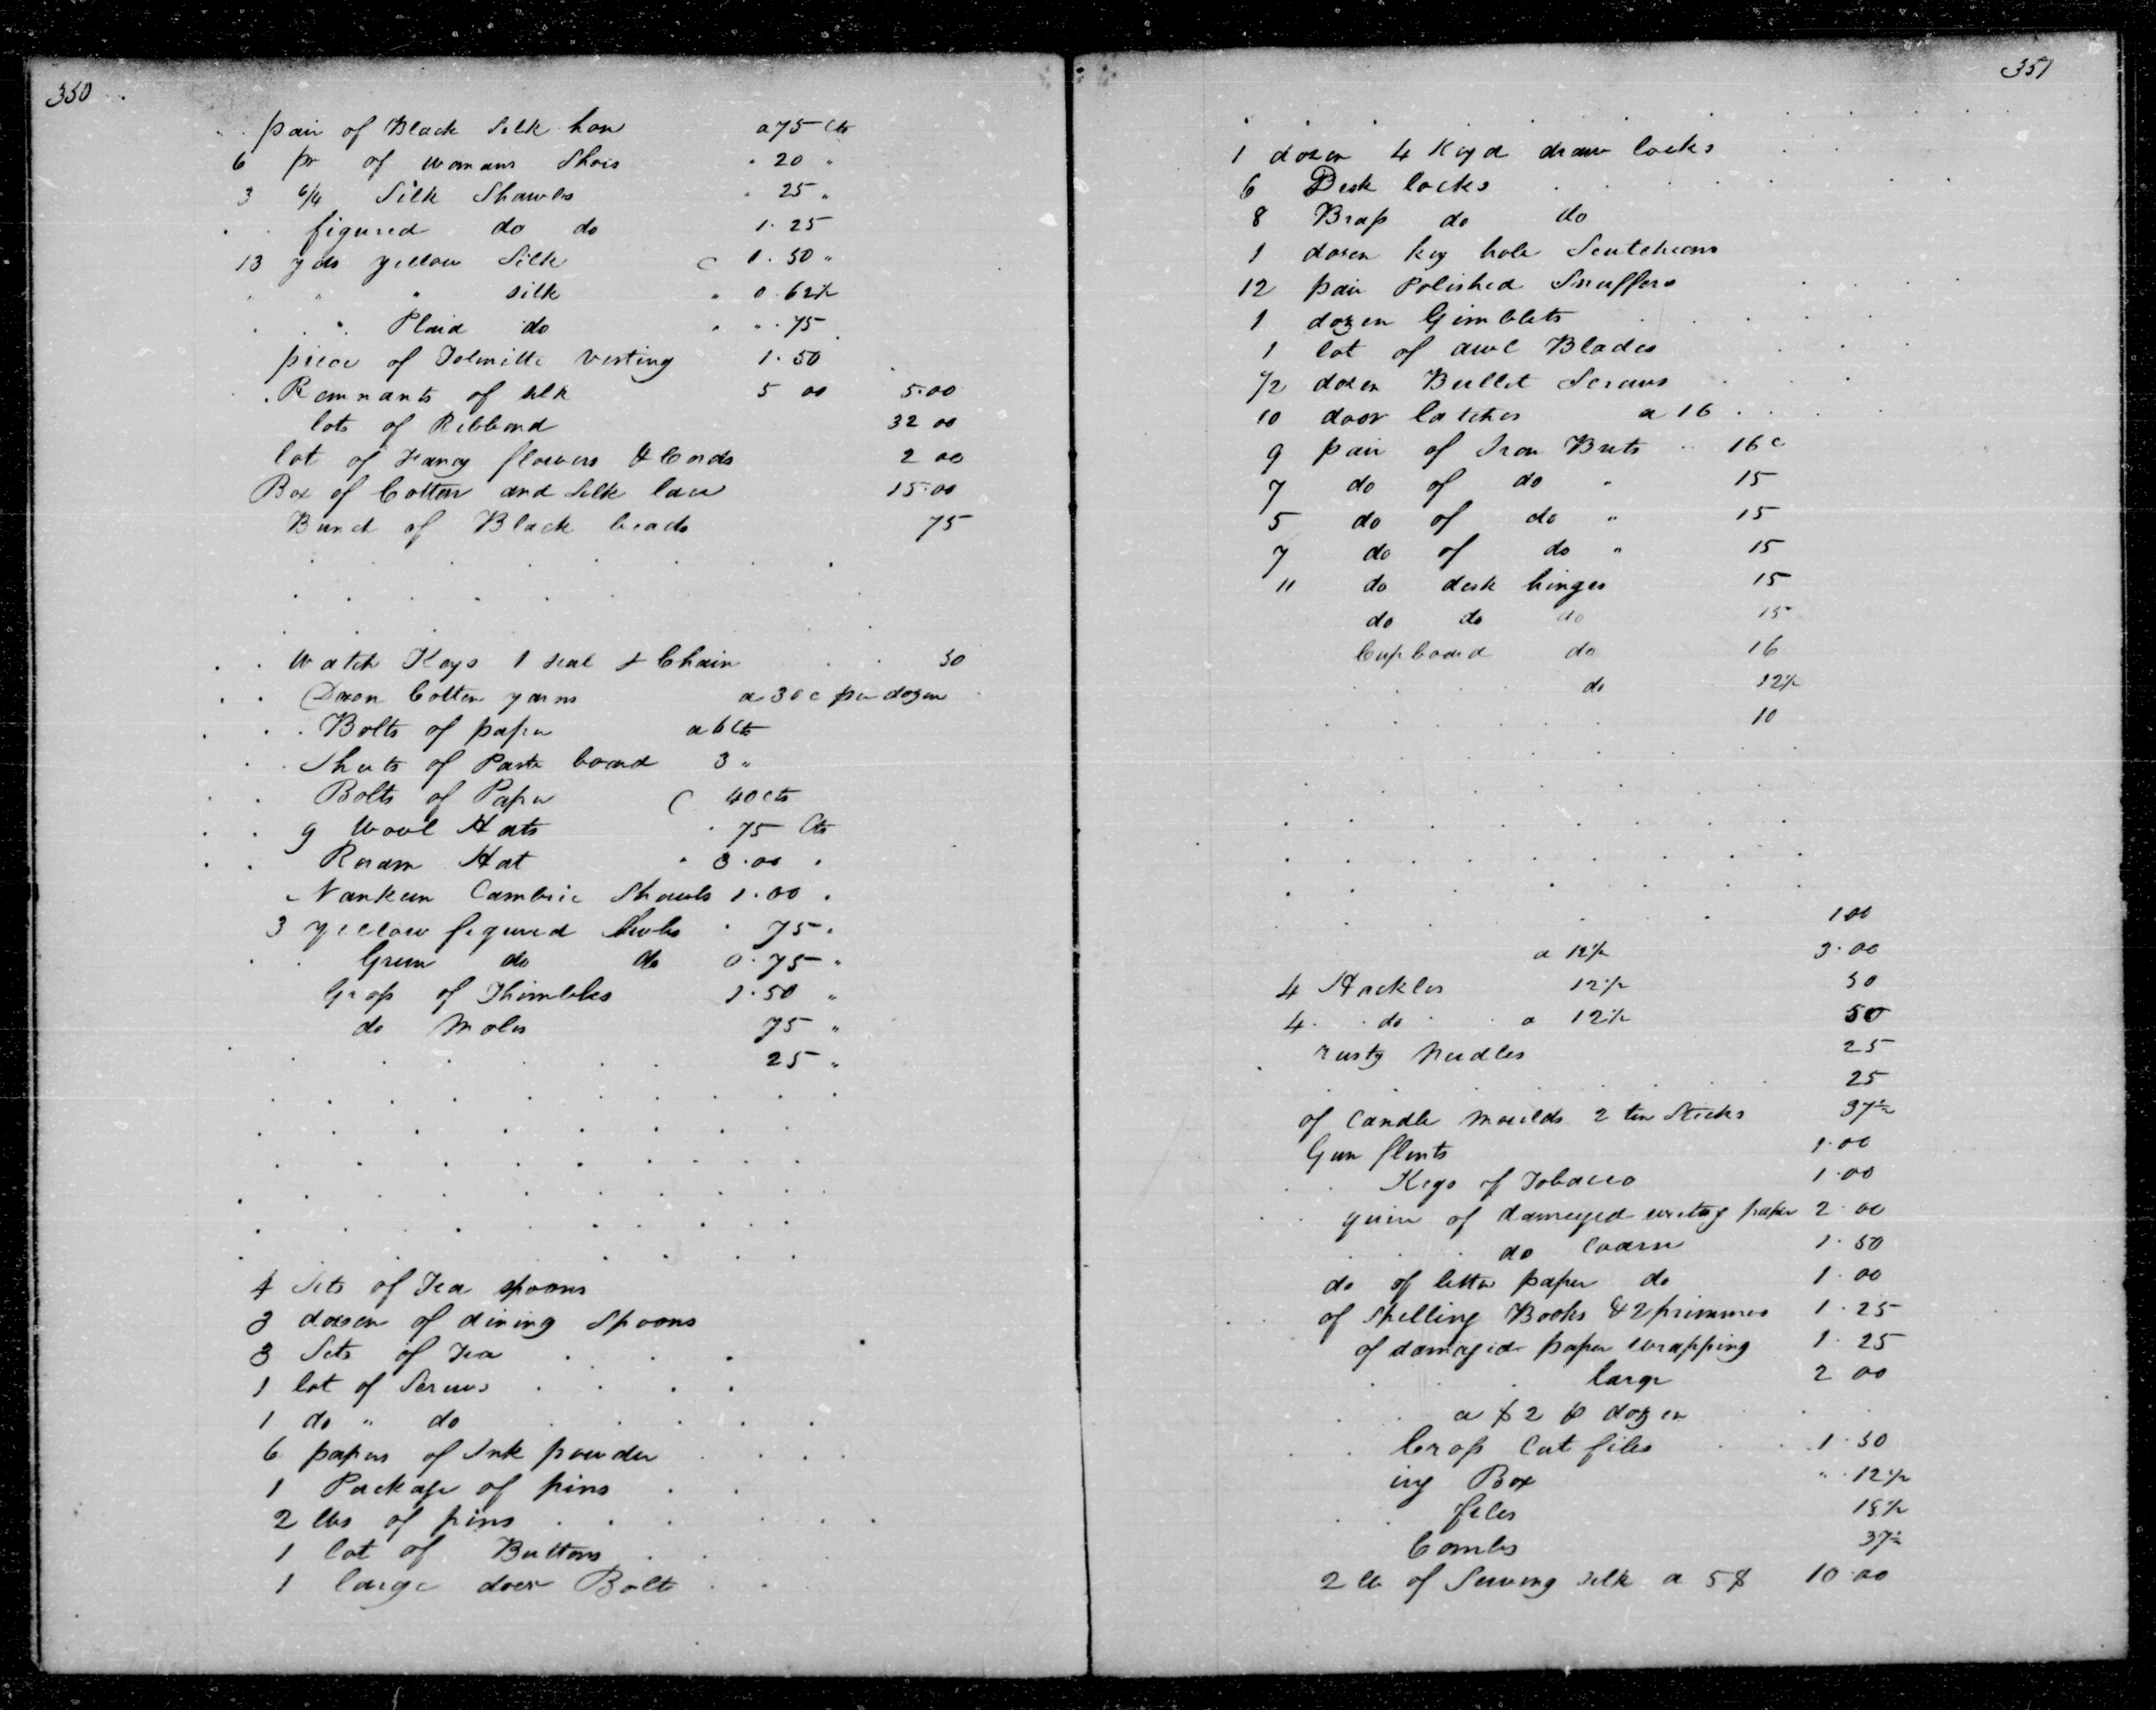 350
pair of Black Silk hose a 75 Cts
6 pr of womans Shoes " 20 "
3 6/4 Silk Shawls " 25 "
figured do do 1.25
13 yds yellow Silk 1.50 "
" " " silk " 0.62½
" Plaid do " " .75
piece of vesting 1.50
Remnants of silk 5 00 5.00
lots of Ribbond 32 00
lot of Fancy flowers & Cords 2 00
Box of Cotton and Silk lace 15.00
Bunch of Black beads 75
Watch Keys 1 seal & Chain 50
Dozen Cotton yarns a 30 c per dozen
Bolts of paper a 6 Cts
Sheets of Paste board 3 "
Bolts of Paper 40 cts
9 Wool Hats 75 Cts
Roram Hat " 3.00 "
Nankeen Cambric Shawls 1.00 "
3 yellow figured Shwls " 75 "
Green do do 0.75 "
Gross of Thimbles 1.50 "
do Molds 75 "
25 "
4 Sets of Tea spoons
3 dozen of dining Spoons
3 Sets of Tea
1 lot of Screws
1 do " do
6 papers of Ink powder
1 Package of pins
2 lbs of pins
1 lot of Buttons
1 large door Bolt
351
1 dozen 4 Keyd draw locks
6 Desk locks
8 Brass do do
1 dozen key hole Scutcheons
12 pair Polished Snuffers
1 dozen Gimblets
1 lot of awl Blades
½ dozen Bullet Screws
10 door latches a 16
9 pair of Iron Buts 16 c
7 do of do " 15
5 do of do " 15
7 do of do " 15
11 do desk hinges 15
do do do 15
Cupboard do 16
do 12½
10
1 00
a 12½ 3.00
4 Hackles 12½ 50
4 do a 12½ 50
rusty Needles 25
25
of Candle Moulds 2 tin Sticks 37½
Gun flints 1.00
Kegs of Tobacco 1.00
quire of damaged writing paper 2.00
do Coarse 1.50
do of letter paper do 1.00
of Spelling Books & 2 primmers 1.25
of damaged paper wrapping 1.25
large 2 00
a $2 p dozen
Cross Cut files 1.50
ing Box " 12½
files 18½
Combs 37½
2 lb of Sewing silk a 5$ 10.00